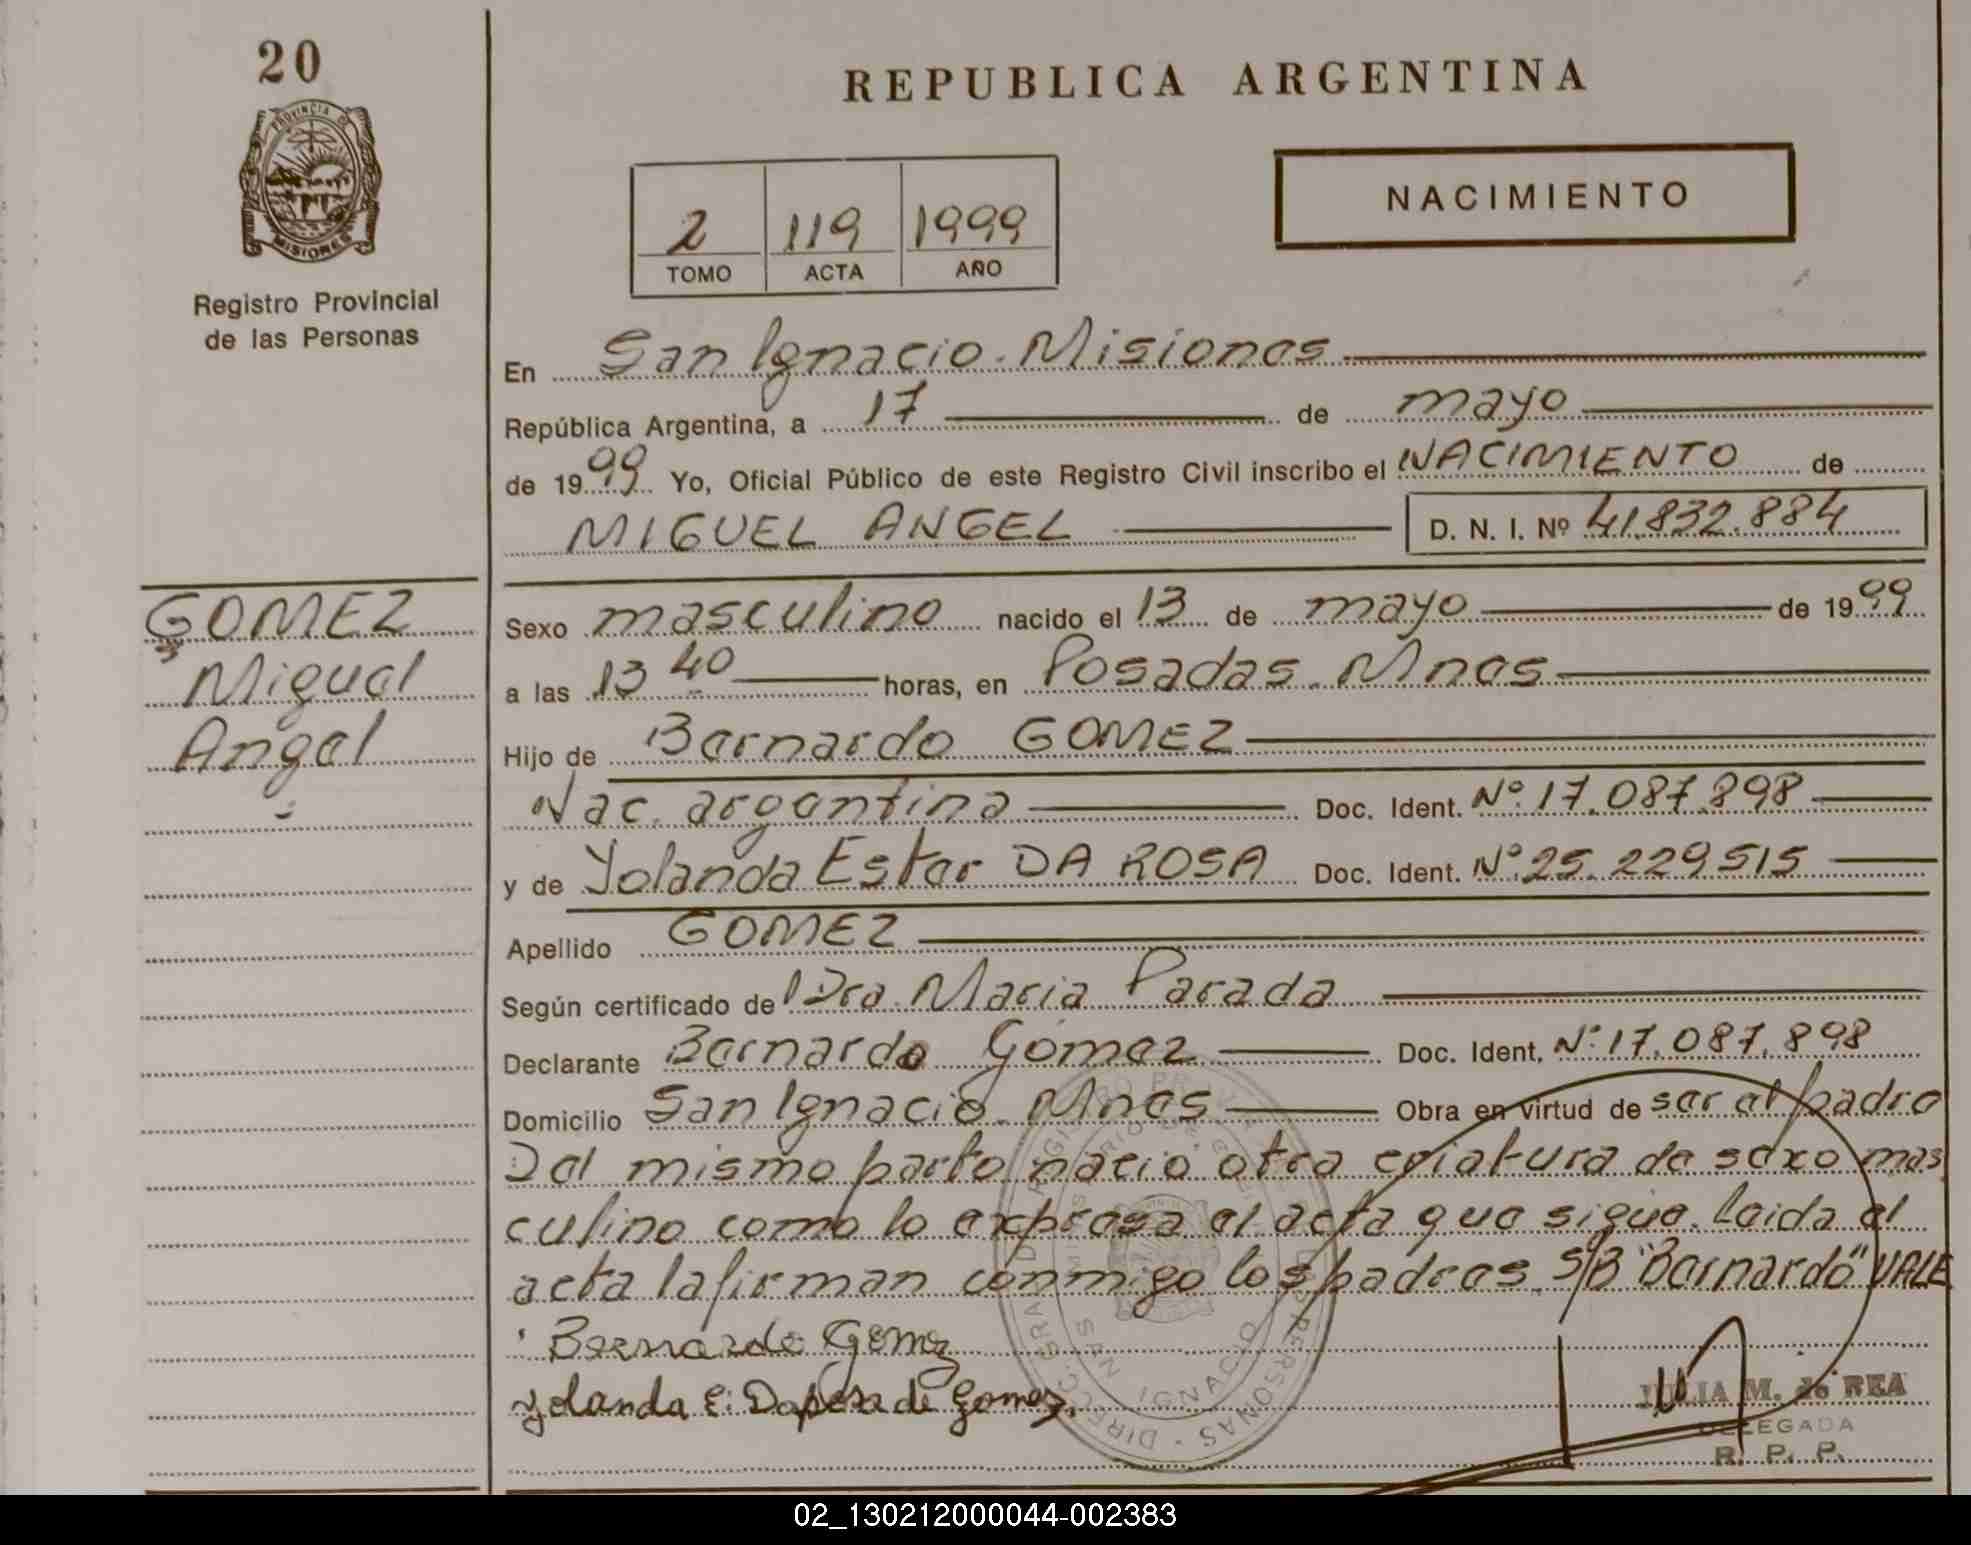 20
REPUBLICA ARGENTINA
PROVINCIA DE
MISIONES
NACIMIENTO
2 119 1999
TOMO ACTA AÑO
Registro Provincial
de las Personas
En San Ignacio. Misiones
República Argentina, a 17 de mayo
de 1999 Yo, Oficial Público de este Registro Civil inscribo el NACIMIENTO de
MIGUEL ANGEL D. N. I. Nº 41.832.884
GOMEZ
Miguel
Angel
Sexo masculino nacido el 13 de mayo de 1999
a las 13 40 horas, en Posadas. Mnes
Hijo de Bernardo GOMEZ
Nac. argentina Doc. Ident. Nº 17.087.898
y de Yolanda Ester DA ROSA Doc. Ident. Nº 25.229515
Apellido GOMEZ
Según certificado de Dra. Maria Parada
Declarante Bernardo Gómez Doc. Ident. Nº 17.087.898
Domicilio San Ignacio. Mnes Obra en virtud de ser el padre
Del mismo parto nacio otra criatura de sexo mas
culino como lo expresa el acta que sigue. Leida el
acta la firman conmigo los padres. S/B "Bernardo" VALE
Bernardo Gomez
Yolanda E. Da Rosa de Gomez.
SAN IGNACIO
JULIA M. de REA
DELEGADA
R. P. P.
02_130212000044-002383